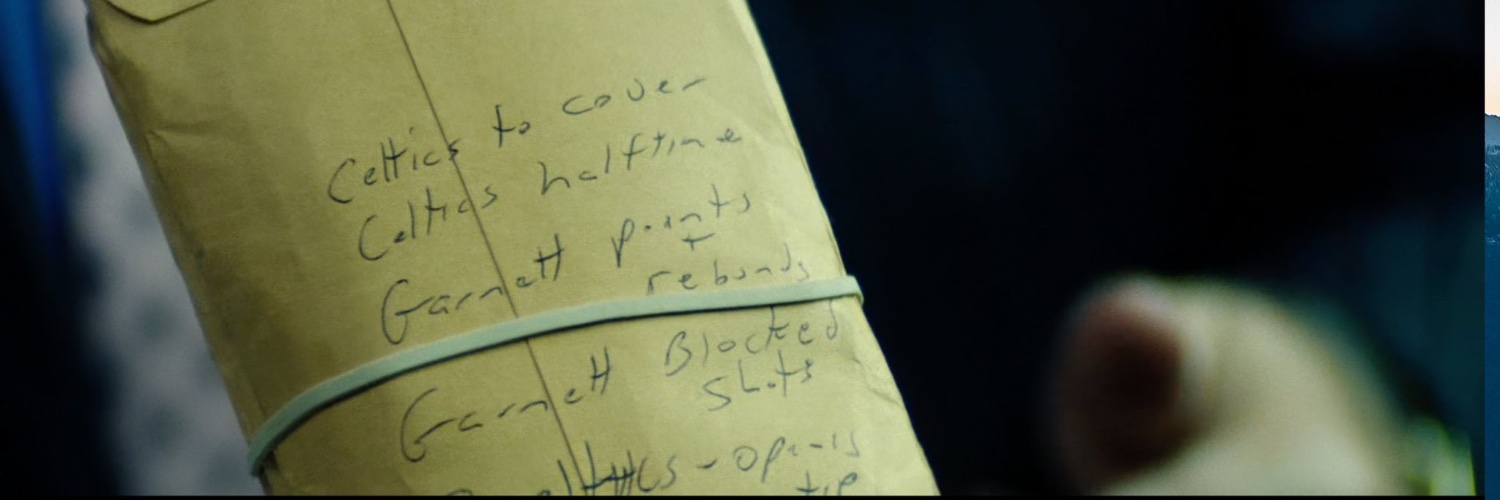 Celtics to cover
Celtics halftime
Garnett points
+
rebounds
Garnett Blocked
Shots
Celtics - opening
tip